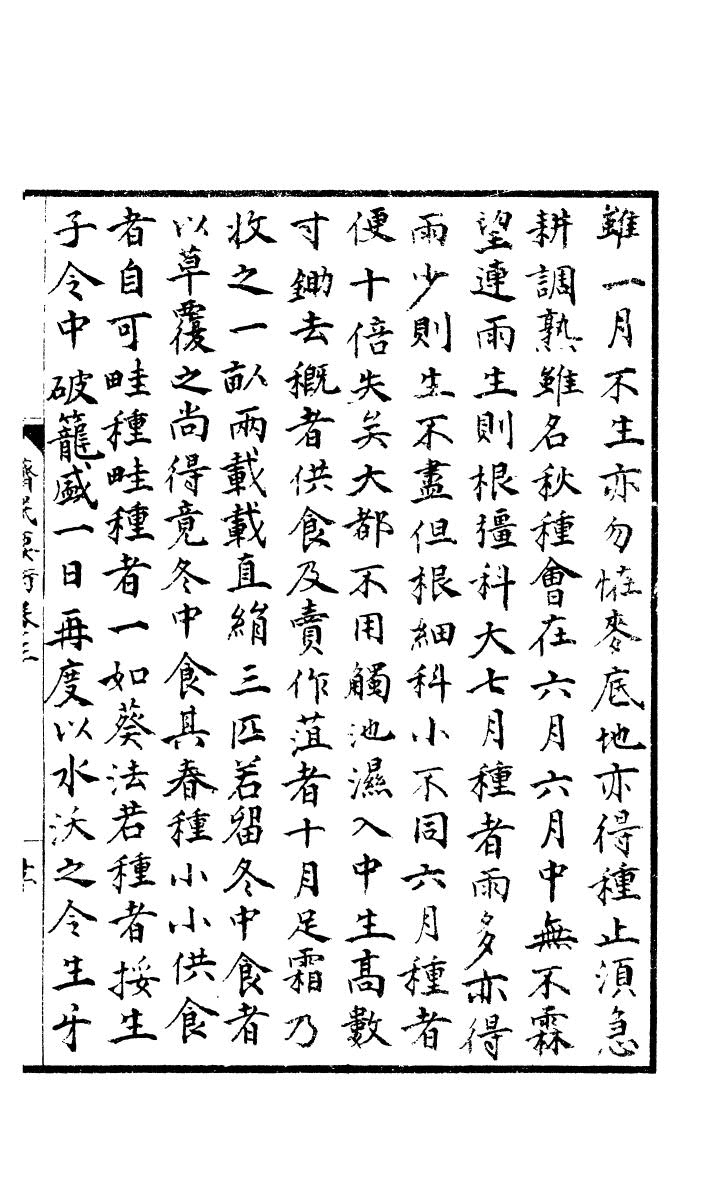 雖一月不生亦勿恠麥底地亦得種止須急
耕調熟雖名秋種會在六月六月中無不霖
望連雨生則根彊科大七月種者雨多亦得
雨少則生不盡但根細科小不同六月種者
便十倍失矣大都不用觸池濕入中生高數
寸鋤去穊者供食及賣作葅者十月足霜乃
收之一畝兩載載直絹三匹若留冬中食者
以草覆之尚得竟冬中食其春種小小供食
者自可畦種畦種者一如葵法若種者挼生
子令中破籠盛一日再度以水沃之令生牙
齊民要術卷三